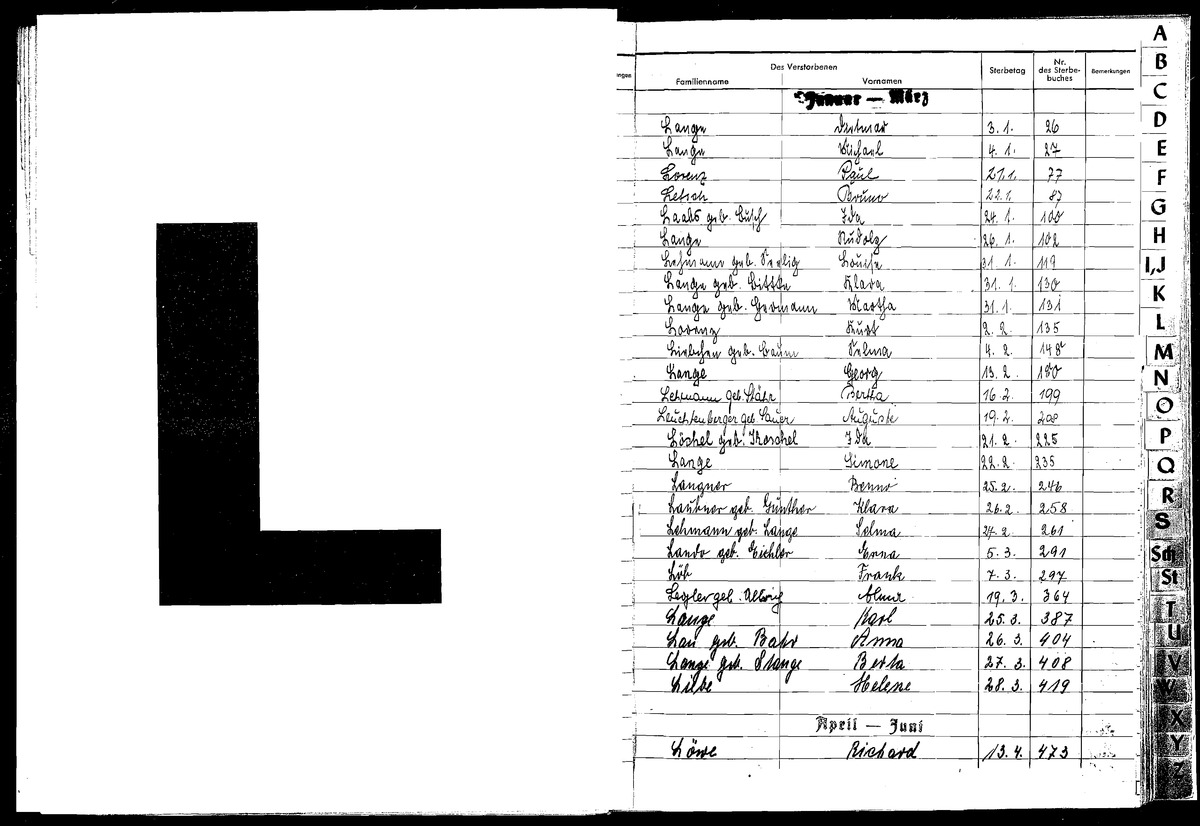 L
Des Verstorbenen
Familienname Vornamen Sterbetag Nr. des Sterbebuches Bemerkungen
Januar — März
Lange Dietmar 3. 1. 26
Lange Michael 4. 1. 27
Lorenz Paul 21. 1. 77
Letsch Bruno 22. 1. 87
Laabs geb. Busch Ida 24. 1. 100
Lange Rudolf 26. 1. 102
Lehmann geb. Seelig Louise 31. 1. 119
Lange geb. Bittke Klara 31. 1. 130
Lange geb. Germann Martha 31. 1. 131
Lorenz Kurt 2. 2. 135
Liebchen geb. Baum Selma 4. 2. 148
Lange Georg 13. 2. 180
Lehmann geb. Stähr Bertha 16. 2. 199
Leuchtenberger geb. Sauer Auguste 19. 2. 208
Löschel geb. Koschel Ida 21. 2. 225
Lange Simone 22. 2. 235
Langner Benno 25. 2. 246
Laubner geb. Günther Klara 26. 2. 258
Lehmann geb. Lange Selma 27. 2. 261
Lando geb. Eichler Erna 5. 3. 291
Löb Frank 7. 3. 297
Legler geb. Alma 19. 3. 364
Lange Karl 25. 3. 387
Lau geb. Bahr Anna 26. 3. 404
Lange geb. Stange Berta 27. 3. 408
Liebe Helene 28. 3. 419
April — Juni
Löwe Richard 13. 4. 473
A
B
C
D
E
F
G
H
I,J
K
L
M
N
O
P
Q
R
S
Sch
St
T
U
V
W
X
Y
Z